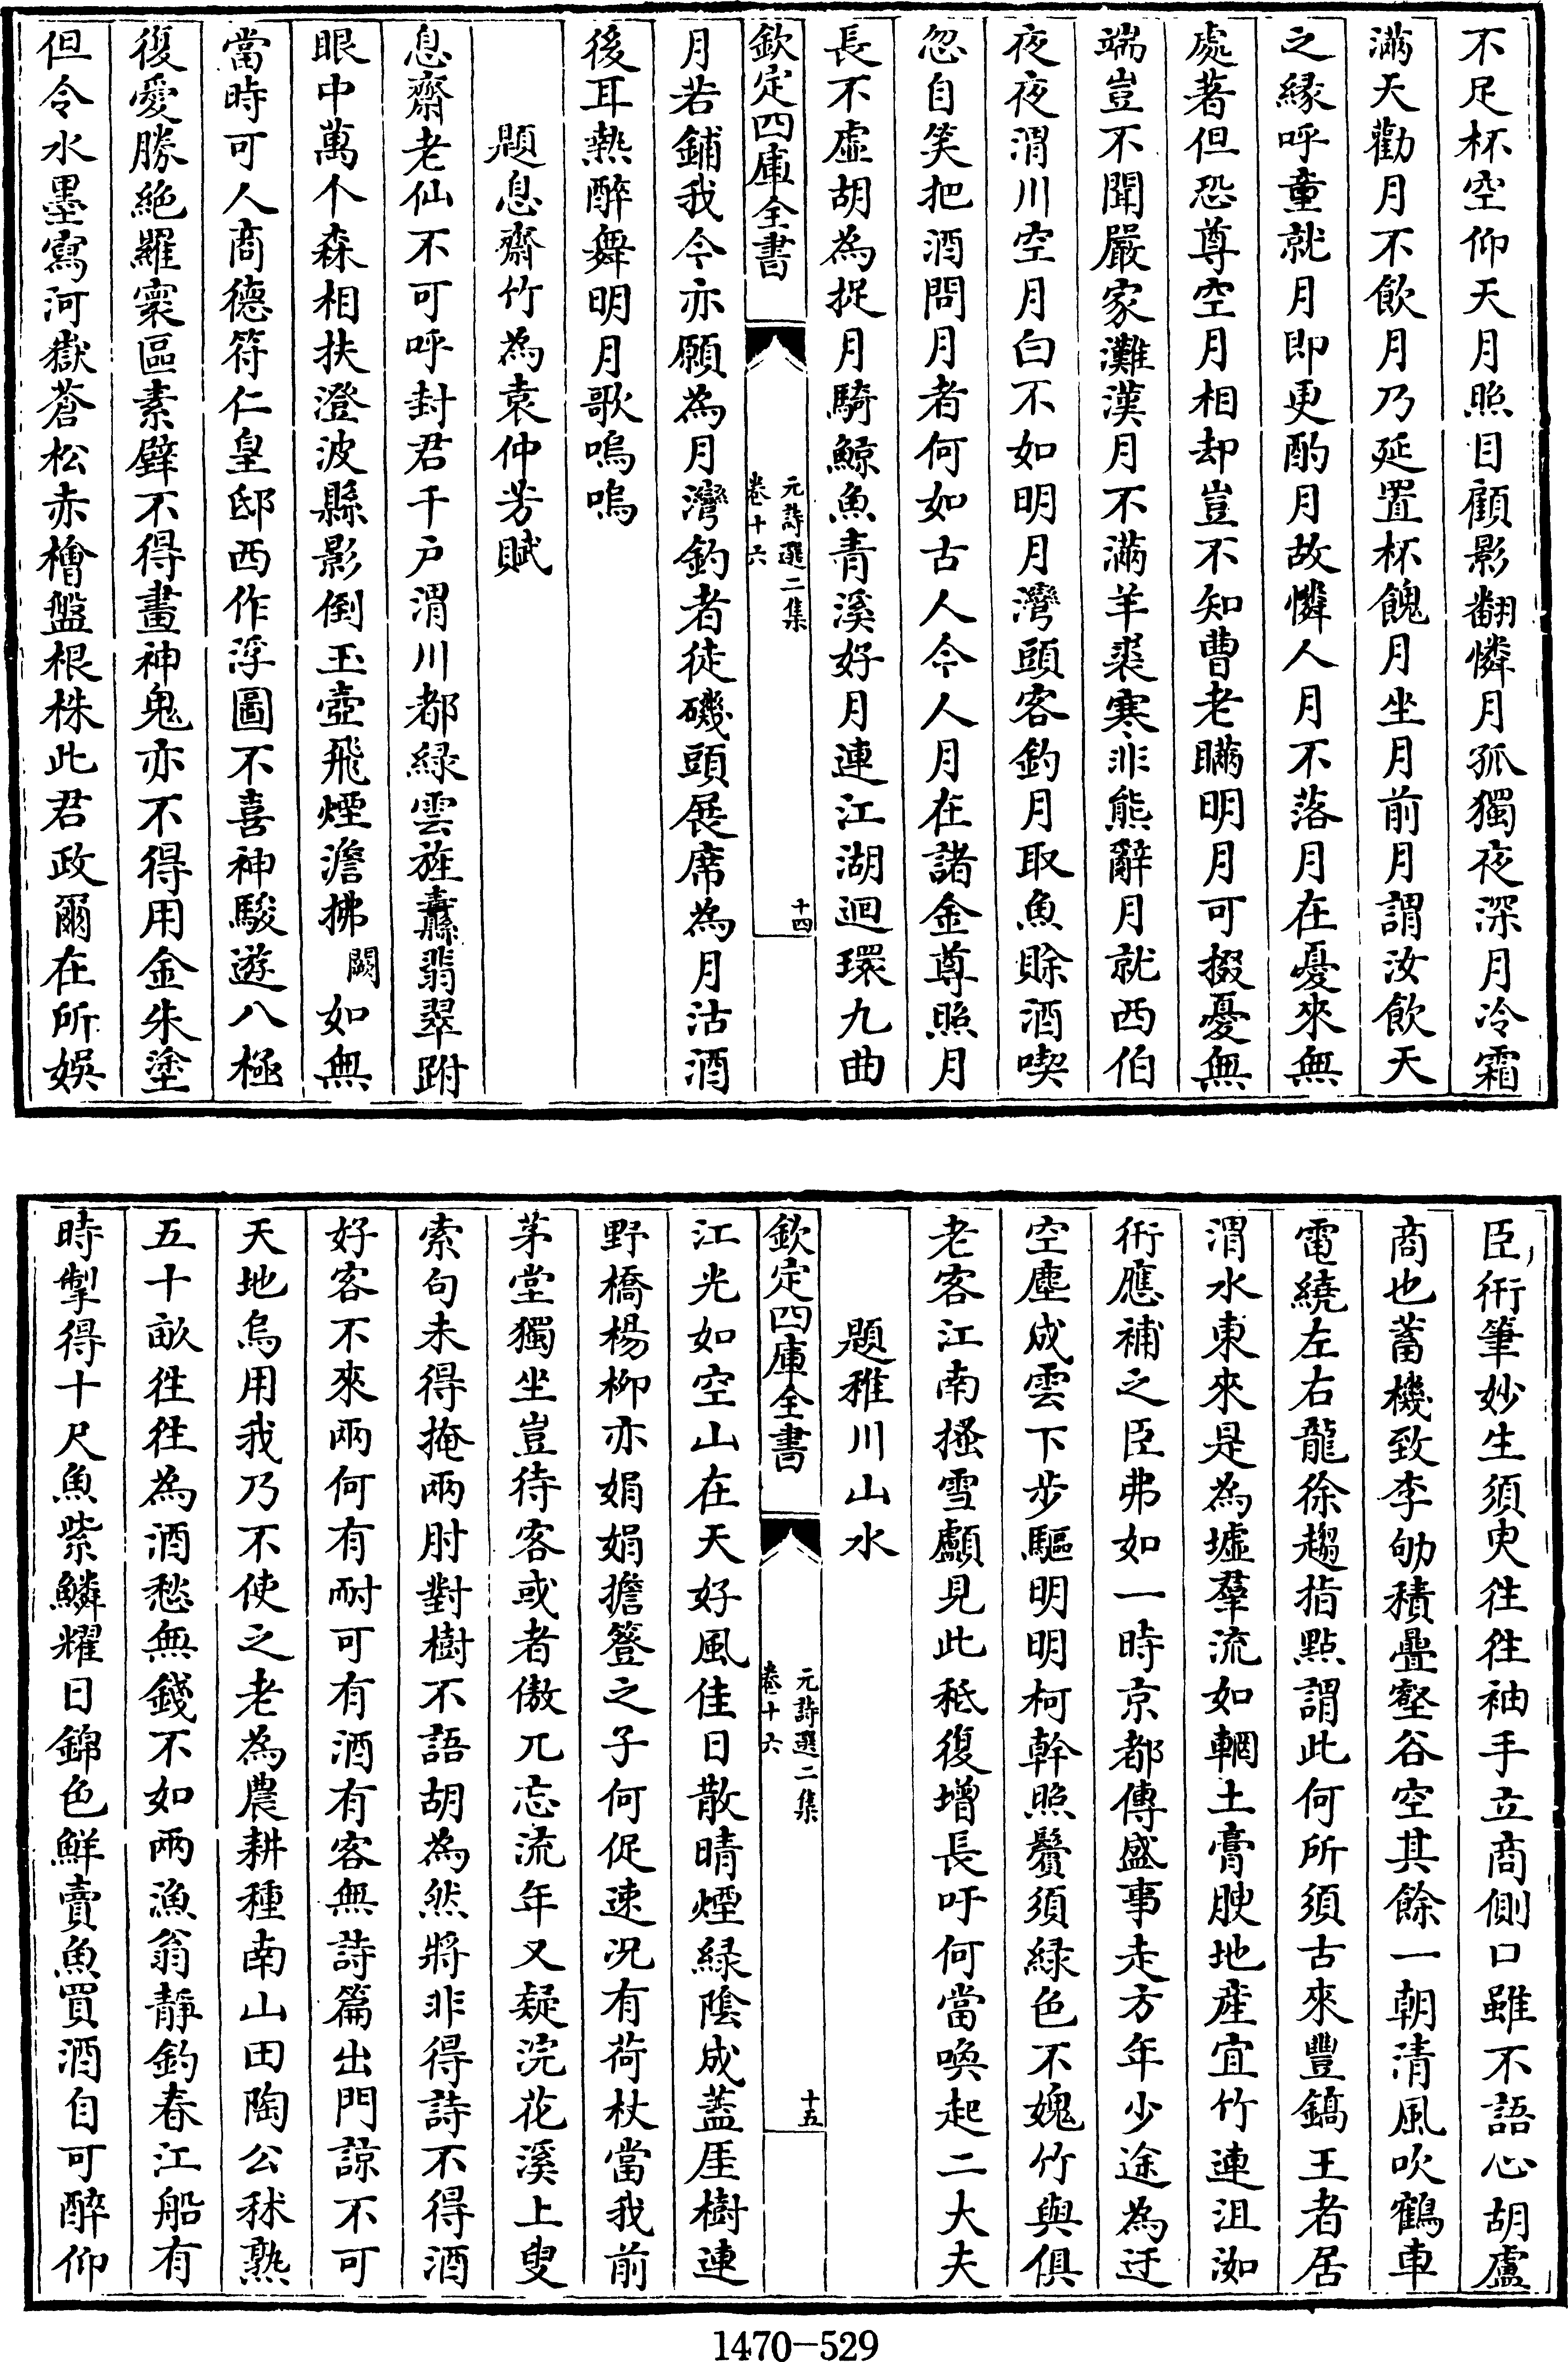 不足杯空仰天月照目顧影翻憐月孤獨夜深月冷霜
滿天勸月不飲月乃延置杯餽月坐月前月謂汝飲天
之縁呼童就月即更酌月故憐人月不落月在憂來無
處著但恐尊空月相却豈不知曹老瞞明月可掇憂無
端豈不聞嚴家灘漢月不滿羊裘寒非熊辭月就西伯
夜夜渭川空月白不如明月灣頭客釣月取魚賖酒喫
忽自笑把酒問月者何如古人今人月在諸金尊照月
長不虛胡為捉月騎鯨魚青溪好月連江湖迴環九曲
欽定四庫全書
元詩選二集
卷十六
十四
月若鋪我今亦願為月灣釣者徒磯頭展席為月沽酒
後耳熱醉舞明月歌嗚嗚
題息齋竹為袁仲芳賦
息齋老仙不可呼封君千户渭川都緑雲旌纛翡翠跗
眼中萬个森相扶澄波縣影倒玉壺飛煙澹拂闕如無
當時可人商德符仁皇邸西作浮圖不喜神駿遊八極
復愛勝絶羅寰區素壁不得畫神鬼亦不得用金朱塗
但令水墨寫河嶽蒼松赤檜盤根株此君政爾在所娛
臣衎筆妙生須臾往往袖手立商側口雖不語心胡盧
商也蓄機致李劬積疊壑谷空其餘一朝清風吹鶴車
電繞左右龍徐趨指點謂此何所須古來豐鎬王者居
渭水東來是為墟羣流如輞土膏腴地産宜竹連沮洳
衎應補之臣弗如一時京都傳盛事走方年少途為迂
空塵成雲下步驅明明柯幹照鬢須緑色不媿竹與俱
老客江南搔雪顱見此秪復增長吁何當喚起二大夫
題稚川山水
欽定四庫全書
元詩選二集
卷十六
十五
江光如空山在天好風佳日散晴煙緑陰成蓋厓樹連
野橋楊柳亦娟娟擔簦之子何促速況有荷杖當我前
茅堂獨坐豈待客或者傲兀忘流年又疑浣花溪上叟
索句未得掩兩肘對樹不語胡為然將非得詩不得酒
好客不來兩何有耐可有酒有客無詩篇出門諒不可
天地烏用我乃不使之老為農耕種南山田陶公秫熟
五十畝徃徃為酒愁無錢不如兩漁翁靜釣春江船有
時掣得十尺魚紫鱗耀日錦色鮮賣魚買酒自可醉仰
1470-529